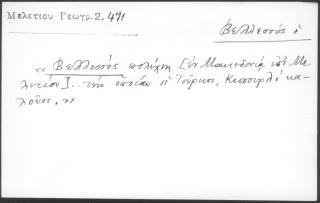 Μελετίου Γεωγρ. 2, 471
Βελλεσσός ὁ
« Βελλεσσός πολίχνη [ἐν Μακεδονίᾳ ὑπὸ Με-
λετίου].. τὴν ὁποίαν οἱ Τοῦρκοι, Κιοπρλί κα-
λοῦσι, »